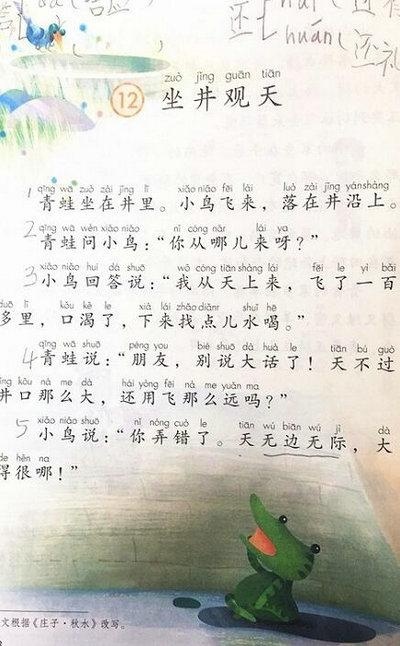 huán(还礼
zuò jǐng guān tiān
12 坐井观天
qīng wā zuò zài jǐng lǐ xiǎo niǎo fēi lái luò zài jǐng yán shàng
1 青蛙坐在井里。小鸟飞来，落在井沿上。
qīng wā wèn xiǎo niǎo nǐ cóng nǎr lái ya
2 青蛙问小鸟：“你从哪儿来呀？”
xiǎo niǎo huí dá shuō wǒ cóng tiān shàng lái fēi le yì bǎi
3 小鸟回答说：“我从天上来，飞了一百
duō lǐ kǒu kě le xià lái zhǎo diǎnr shuǐ hē
多里，口渴了，下来找点儿水喝。”
qīng wā shuō péng you bié shuō dà huà le tiān bú guò
4 青蛙说：“朋友，别说大话了！天不过
jǐng kǒu nà me dà hái yòng fēi nà me yuǎn ma
井口那么大，还用飞那么远吗？”
xiǎo niǎo shuō nǐ nòng cuò le tiān wú biān wú jì dà
5 小鸟说：“你弄错了。天无边无际，大
de hěn na
得很哪！”
文根据《庄子·秋水》改写。